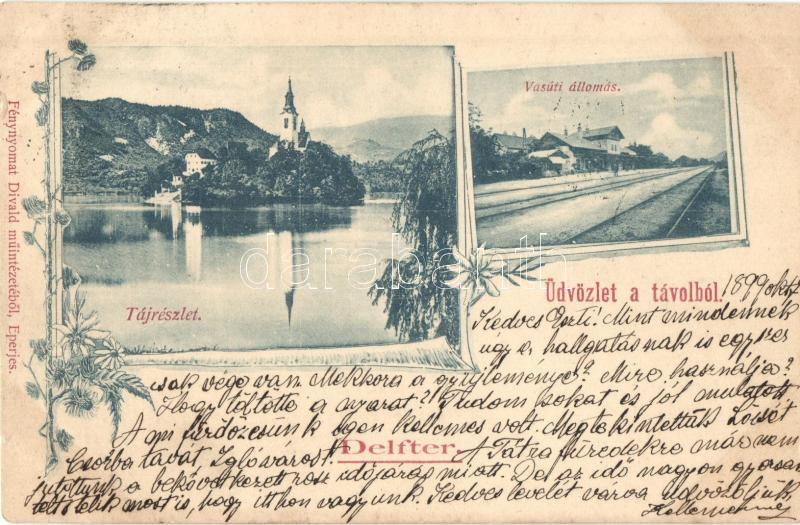 Vasúti állomás.
Tájrészlet.
Fénynyomat Divald műintézetéből, Eperjes.
darabanth
Üdvözlet a távolból.
1899 okt
Kedves Eszti! Mint mindennek
úgy a hallgatásnak is egyszer
csak vége van. Mekkora a gyűjteménye? Mire használja?
Hogy töltötte a nyarat? Tudom sokat és jól mulatott.
A mi fürdőzésünk igen kellemes volt. Megtekintettük Lőcsét
Csorba tavat, Iglóvárost. A Tátrafüredekre már nem
Delfter.
jutottunk a bekövetkezett rosz időjárás miatt. De az idő nagyon gyorsan
telt s itt most is, hogy itthon vagyunk. Kedves levelét várva üdvözöljük